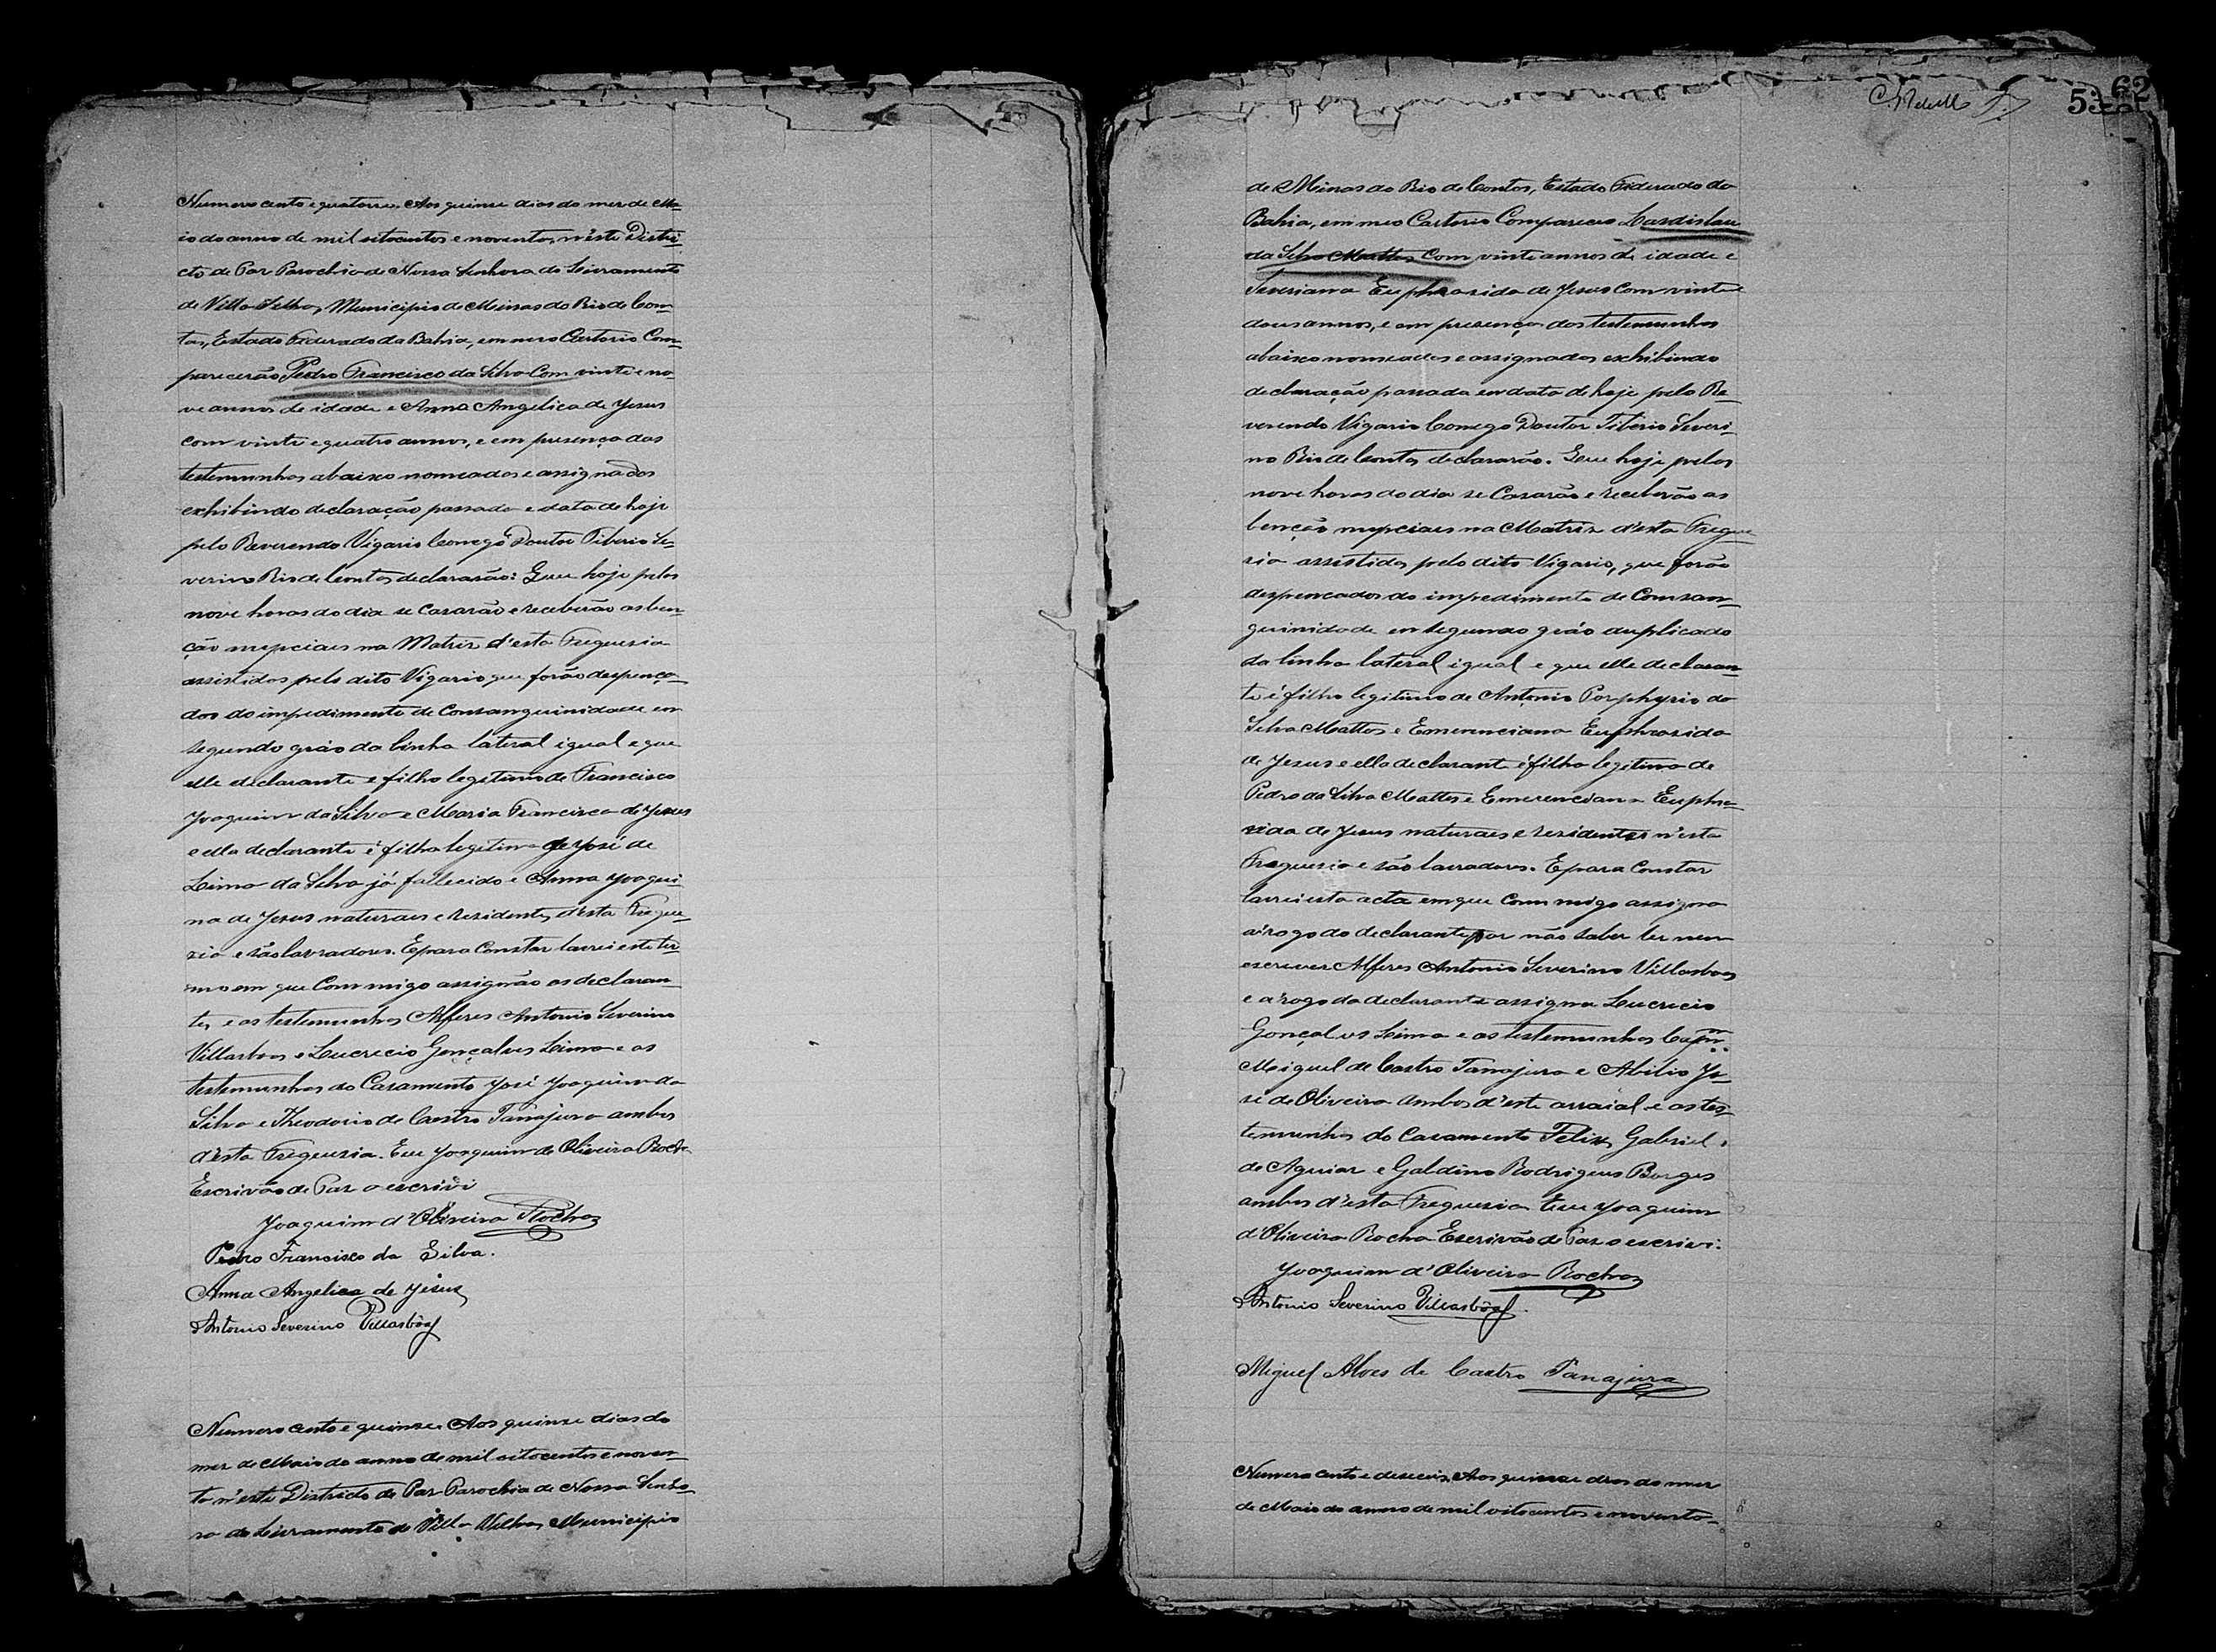 Numero cento e quatorse. Aos quinze dias do mez de Ma-
io do anno de mil oitocentos e noventa, n'este Distri-
cto de Paz Parochia de Nossa Senhora do Livramento
de Villa Velha, Municipio de Minas do Rio de Con-
tas, Estado Federado da Bahia, em meo Cartorio Com-
parecerão Pedro Francisco da Silva Com vinte e no-
ve annos de idade e Anna Angelica de Jesus
com vinte e quatro annos, e em presença das
testemunhas abaixo nomeadas e assignados
exhibindo declaração passada e data de hoje
pelo Reverendo Vigario Conego Doutor Tiberio Se-
verino Rio de Contas declararão: Que hoje pelas
nove horas do dia se Casarão e receberão as ben-
ção nupciaes na Matriz d'esta Freguesia
assistidos pelo dito Vigario que forão despença-
dos do impedimento de Consanguinidade em
segundo gráo da linha lateral igual e que
elle declarante é filho legitimo de Francisco
Joaquim da Silva e Maria Francisca de Jesus
e ella declarante é filha legitima de José de
Lima da Silva já fallecido e Anna Joaqui-
na de Jesus naturaes e residentes d'esta Fregue-
sia e são lavradores. E para Constar lavrei este ter-
mo em que Commigo assignão os declaran-
tes e as testemunhas Alferes Antonio Severino
Villasboas e Lucrecio Gonçalves Lima e as
testemunhas do Casamento José Joaquim da
Silva e Theodorio de Castro Tanajura ambos
d'esta Freguesia. Eu Joaquim de Oliveira Rocha
Escrivão de Paz o escrivi
Joaquim d'Oliveira Rocha
Pedro Francisco da Silva.
Anna Angelica de Jesus
Antonio Severino Villasbôas
Numero cento e quinze. Aos quinze dias do
mez de Maio do anno de mil oitocentos e noven-
ta n'este Districto de Paz Parochia de Nossa Senho-
ra do Livramento de Villa Velha, Municipio
62
de Minas do Rio de Contas, Estado Federado da
Bahia, em meo Cartorio Compareceo Lasdislau
da Silva Mattos Com vinte annos de idade e
Severiana Euphrasida de Jesus com vinte e
dous annos, e em presença das testemunhas
abaixo nomeadas e assignadas exhibindo
declaração passada em data de hoje pelo Re-
verendo Vigario Conego Doutor Tiberio Severi-
no Rio de Contas, declararão. Que hoje pelas
nove horas do dia se Casarão e receberão as
benção nupciaes na Matriz d'esta Fregue-
sia assistidos pelo dito Vigario, que forão
despençados do impedimento de Consan-
guinidade em segundo gráo duplicado
da linha lateral igual e que elle declaran-
te é filho legitimo de Antonio Porphyrio da
Silva Mattos e Emerenciana Euphrasida
de Jesus e ella declarante é filha legitima de
Pedro da Silva Mattos e Emerenciana Euphra-
sida de Jesus naturaes e residentes n'esta
Freguesia e são lavradores. E para Constar
lavrei esta acta em que Commigo assigna
a'rogo do declarante por não saber ler nem
escrever Alferes Antonio Severino Villasboas
e a'rogo da declarante assigna Lucrecio
Gonçalves Lima e as testemunhas Capm
Miguel de Castro Tanajura e Abilio Jo-
sé de Oliveira ambos d'este arraial e as tes-
temunhas do Casamento Felix Gabriel
de Aguiar e Galdino Rodrigues Borges
ambos d'esta Freguesia. Eu Joaquim
d'Oliveira Rocha Escrivão de Paz o escrivi.
Joaquim d'Oliveira Rocha
Antonio Severino Villasbôas.
Miguel Alves de Castro Tanajura
Numero cento e deseceis. Aos quinze dias do mez
de Maio do anno de mil oitocentos e noventa-